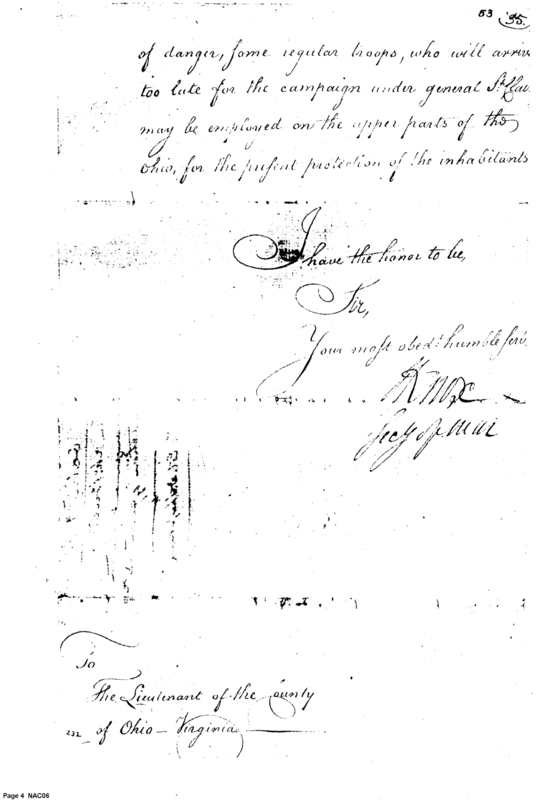 53 35.
of danger, some regular troops, who will arrive
too late for the campaign under general St. Clair
may be employed on the upper parts of the
Ohio, for the present protection of the inhabitants
I have the honor to be,
Sir,
Your most obedt. humble serv.
H Knox
Secy of War
To
The Lieutenant of the County
232 of Ohio — Virginia
Page 4 NAC06